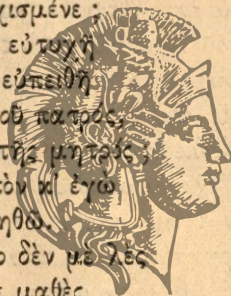 χισμένε ;
εὐτυχῆ
εὐπειθῆ
οῦ πατρός,
τῆς μητρός ;
τὸν κ' ἐγὼ
ηθῶ.
ο δὲν μὲ λὲς
μαθὲς